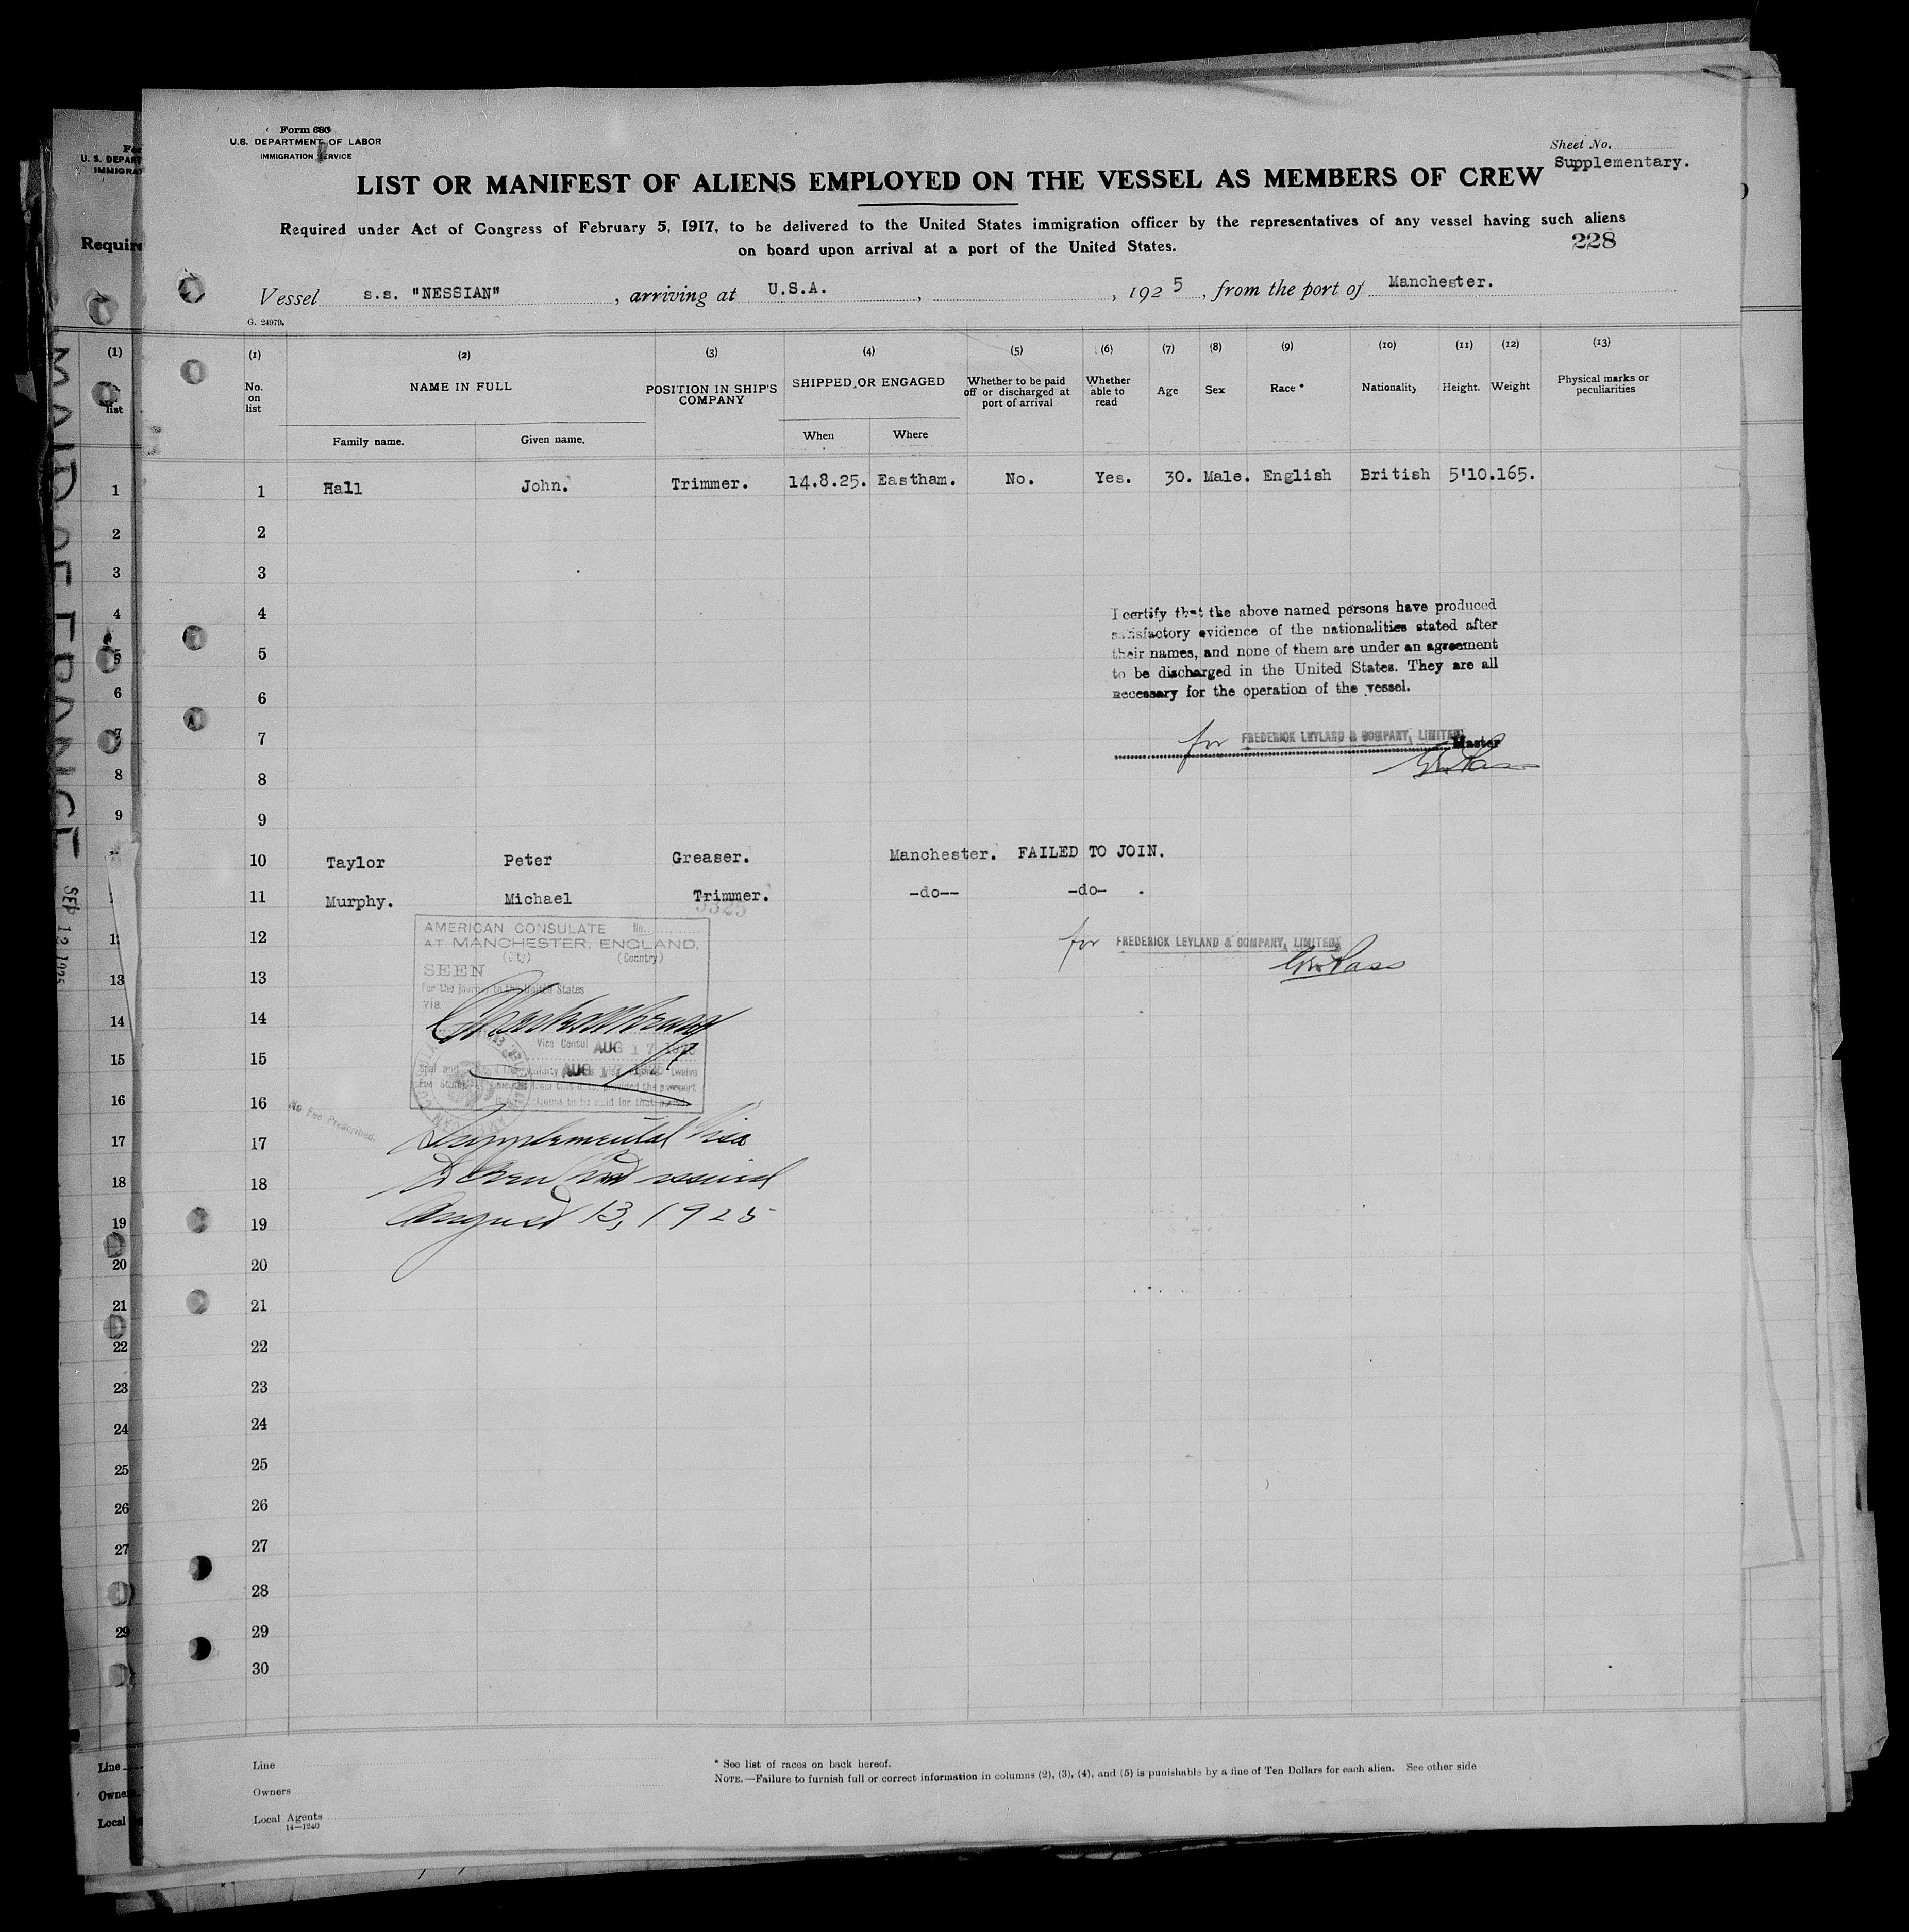 Form 680
U.S. DEPARTMENT OF LABOR
IMMIGRATION SERVICE
Sheet No.
Supplementary.
LIST OR MANIFEST OF ALIENS EMPLOYED ON THE VESSEL AS MEMBERS OF CREW
Required under Act of Congress of February 5, 1917, to be delivered to the United States immigration officer by the representatives of any vessel having such aliens
on board upon arrival at a port of the United States.
228
Vessel s.s. "NESSIAN" , arriving at U.S.A. , , 1925 , from the port of Manchester.
G. 24979.
(1) (2) (3) (4) (5) (6) (7) (8) (9) (10) (11) (12) (13)
No. on list NAME IN FULL POSITION IN SHIP'S COMPANY SHIPPED OR ENGAGED Whether to be paid off or discharged at port of arrival Whether able to read Age Sex Race * Nationality Height. Weight Physical marks or peculiarities
Family name. Given name. When Where
1 Hall John. Trimmer. 14.8.25. Eastham. No. Yes. 30. Male. English British 5'10. 165.
2
3
4
I certify that the above named persons have produced
satisfactory evidence of the nationalities stated after
their names, and none of them are under an agreement
to be discharged in the United States. They are all
necessary for the operation of the vessel.
5
6
7
for FREDERICK LEYLAND & COMPANY, LIMITED Master
8
9
10 Taylor Peter Greaser. Manchester. FAILED TO JOIN.
11 Murphy. Michael Trimmer. -do-- -do- .
12
for FREDERICK LEYLAND & COMPANY, LIMITED,
AMERICAN CONSULATE No.
AT MANCHESTER, ENGLAND,
(City) (Country)
SEEN
For the journey to the United States
via
Vice Consul AUG 17 1925
AUG 17 1925
No Fee Prescribed.
13
14
15
16
17
Supplemental Visa
18
19
August 13, 1925
20
21
22
23
24
25
26
27
28
29
30
Line
Owners
Local Agents
14—1240
* See list of races on back hereof.
NOTE.—Failure to furnish full or correct information in columns (2), (3), (4), and (5) is punishable by a fine of Ten Dollars for each alien. See other side
MAID OF FRANCE SEP 12 1925